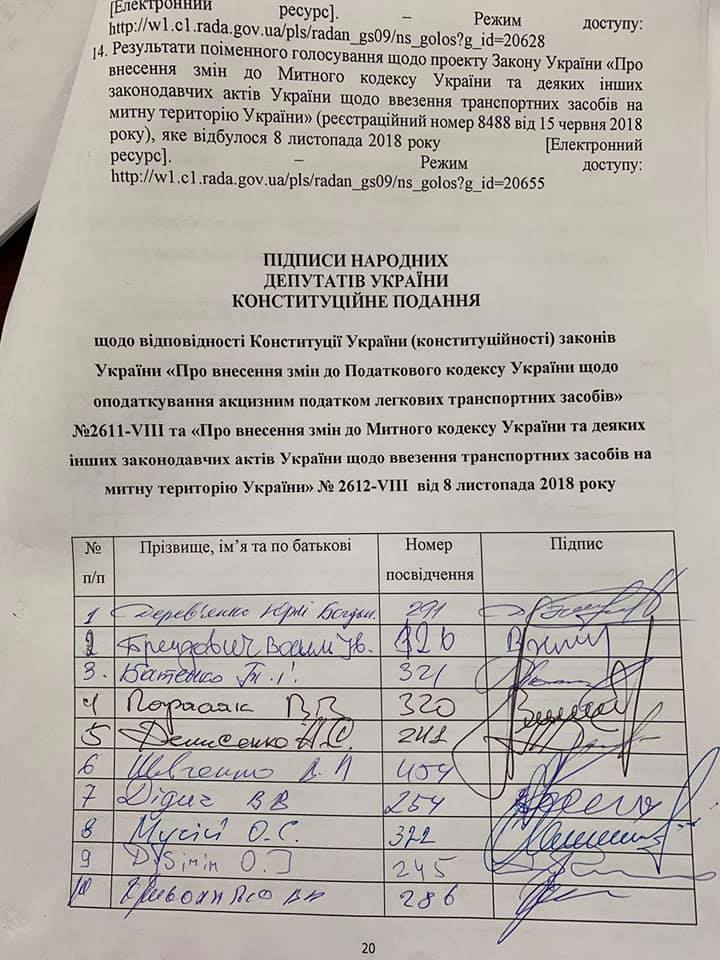 [Електронний ресурс]. – Режим доступу:
http://w1.c1.rada.gov.ua/pls/radan_gs09/ns_golos?g_id=20628
14. Результати поіменного голосування щодо проекту Закону України «Про
внесення змін до Митного кодексу України та деяких інших
законодавчих актів України щодо ввезення транспортних засобів на
митну територію України» (реєстраційний номер 8488 від 15 червня 2018
року), яке відбулося 8 листопада 2018 року [Електронний
ресурс]. – Режим доступу:
http://w1.c1.rada.gov.ua/pls/radan_gs09/ns_golos?g_id=20655
ПІДПИСИ НАРОДНИХ
ДЕПУТАТІВ УКРАЇНИ
КОНСТИТУЦІЙНЕ ПОДАННЯ
щодо відповідності Конституції України (конституційності) законів
України «Про внесення змін до Податкового кодексу України щодо
оподаткування акцизним податком легкових транспортних засобів»
№2611-VIII та «Про внесення змін до Митного кодексу України та деяких
інших законодавчих актів України щодо ввезення транспортних засобів на
митну територію України» № 2612-VIII від 8 листопада 2018 року
№ п/п Прізвище, ім’я та по батькові Номер посвідчення Підпис
1 Дерев'янко Юрій Богдан. 291
2 Брендович Василь Ів. 126
3. Батенко Т.І. 321
4 Поплавк ВВ 320
5 Денисенко А.С. 241
6 Шевченко В.Л 454
7 Дідич В В 254
8 Мусій О.С. 322
9 О.І 245
10 286
20